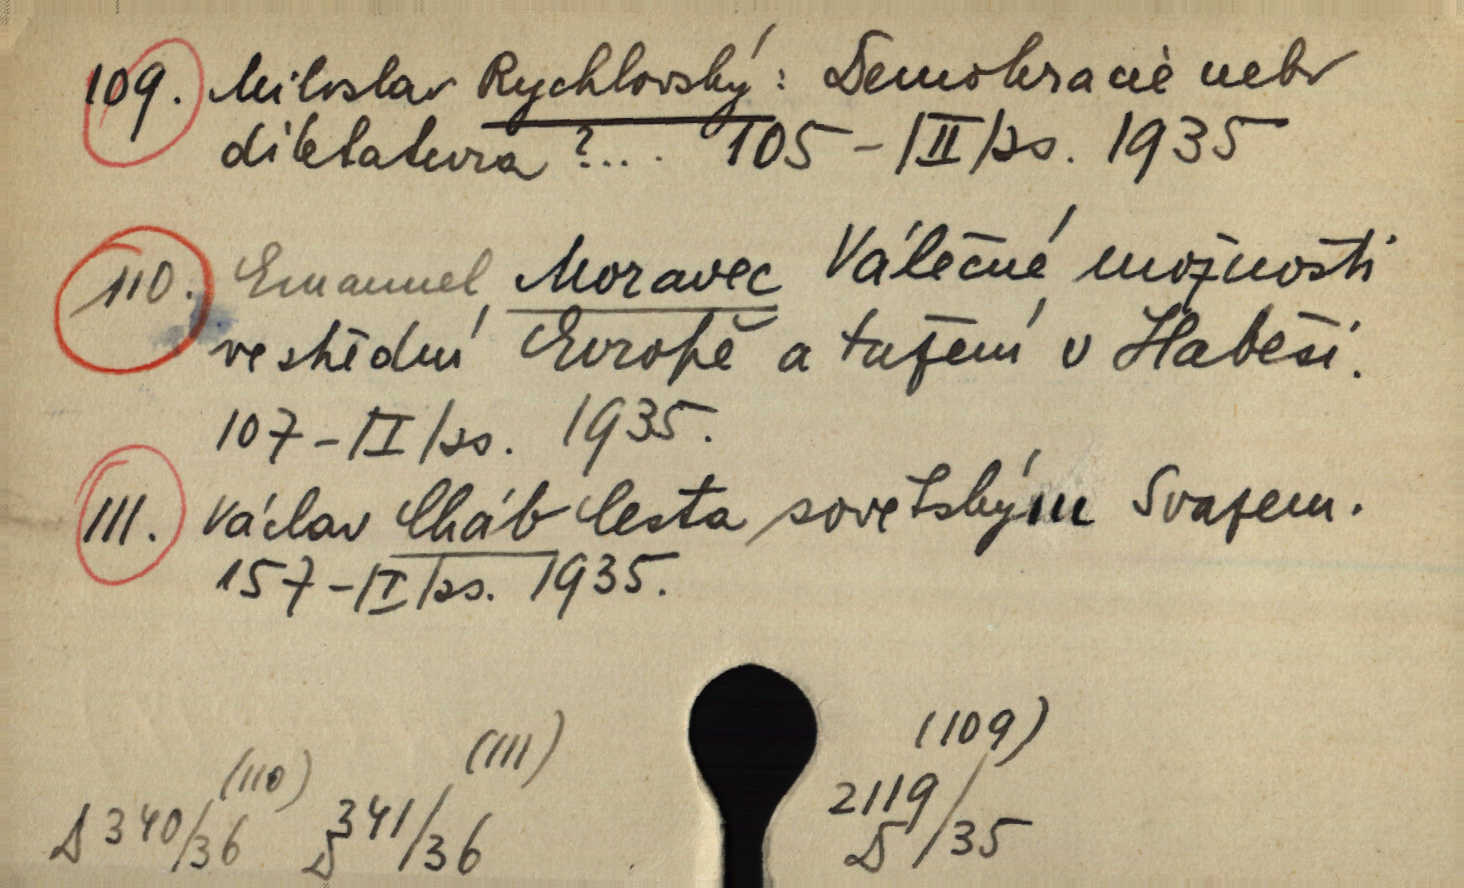 109. Miloslav Rychlovský: Demokracie nebo
diktatura ?... 105 - |II|35. 1935
110. Emanuel Moravec Válečné možnosti
ve střední Evropě a tažení v Habeši.
107 - II|35. 1935.
111. Václav Cháb Cesta sovětským Svazem.
157 - II|35. 1935.
(110) (111) (109)
D 340/36 D 341/36 2119 D/35